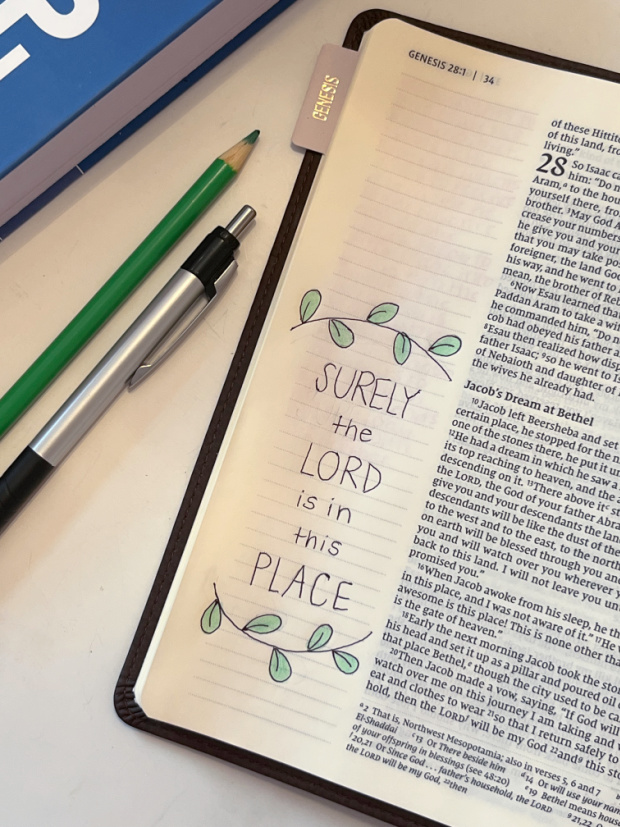 GENESIS 28:1 | 34
GENESIS
SURELY
the
LORD
is in
this
PLACE
of these Hittit
of this land, fro
living."
28 So Isaac ca
him: "Do n
Aram, to the hou
yourself there, fro
brother. ³May God A
crease your numbers
he give you and your
that you may take po
foreigner, the land God
his way, and he went to
mean, the brother of Reb
⁶Now Esau learned tha
Paddan Aram to take a wi
he commanded him, "Do n
cob had obeyed his father a
⁸Esau then realized how disp
father Isaac; ⁹so he went to Is
of Nebaioth and daughter of
the wives he already had.
Jacob's Dream at Bethel
¹⁰Jacob left Beersheba and set
certain place, he stopped for the n
one of the stones there, he put it un
¹²He had a dream in which he saw a
its top reaching to heaven, and the a
descending on it. ¹³There above it st
the LORD, the God of your father Abra
give you and your descendants the lan
descendants will be like the dust of the
to the west and to the east, to the north
on earth will be blessed through you an
you and will watch over you wherever y
back to this land. I will not leave you un
promised you."
¹⁶When Jacob awoke from his sleep, he th
in this place, and I was not aware of it." ¹⁷He w
awesome is this place! This is none other tha
is the gate of heaven."
¹⁸Early the next morning Jacob took the sto
his head and set it up as a pillar and poured oil o
that place Bethel, though the city used to be ca
²⁰Then Jacob made a vow, saying, "If God will
watch over me on this journey I am taking and w
eat and clothes to wear ²¹so that I return safely to
hold, then the LORD will be my God ²²and this sto
2 That is, Northwest Mesopotamia; also in verses 5, 6 and 7
El-Shaddai 13 Or There beside him 14 Or will use your nam
of your offspring in blessings (see 48:20) 19 Bethel means hous
20,21 Or Since God . . . father's household, the LORD 21,22 O
the LORD will be my God, ²²then